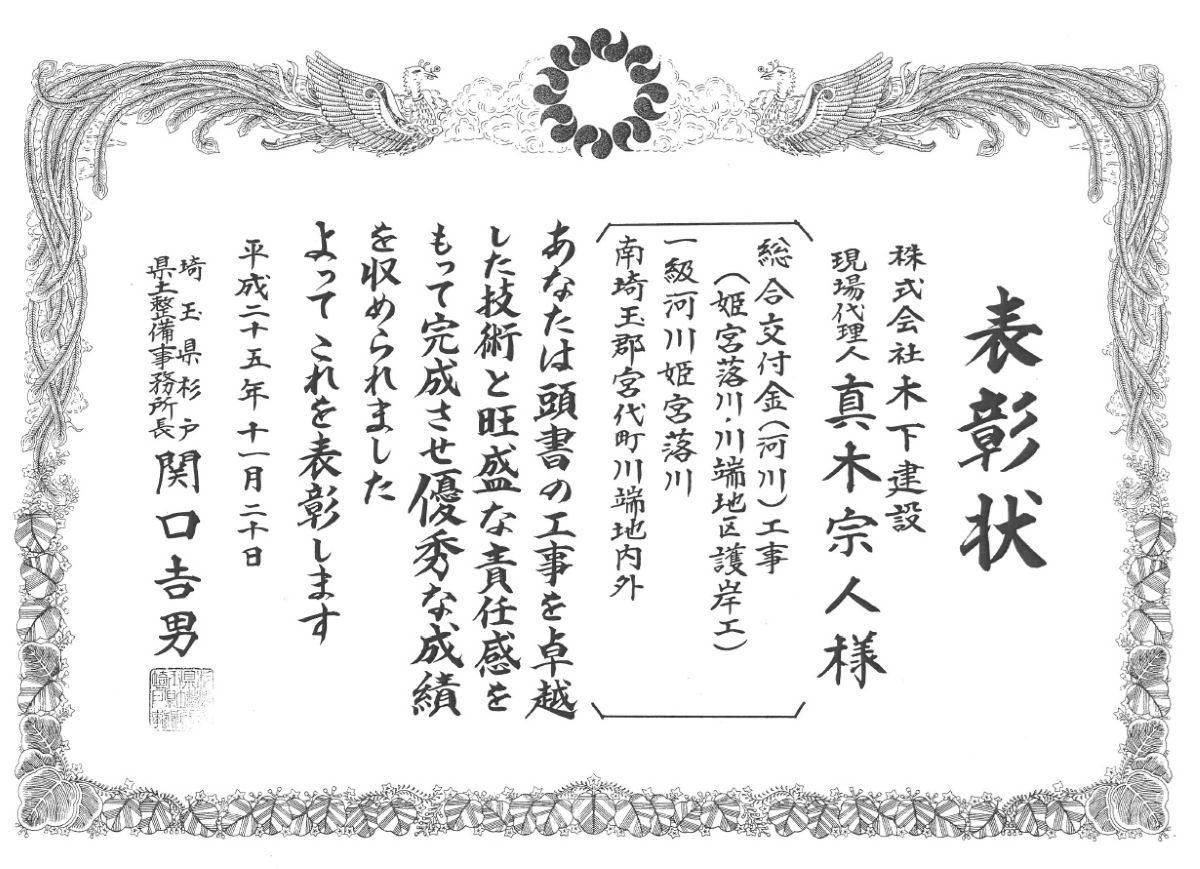 表彰状
株式会社木下建設
現場代理人 真木宗人様
総合交付金(河川)工事
(姫宮落川・川端地区護岸工)
一級河川姫宮落川
南埼玉郡宮代町川端地内外
あなたは頭書の工事を卓越
した技術と旺盛な責任感を
もって完成させ優秀な成績
を収められました
よってこれを表彰します
平成二十五年十一月二十日
埼玉県杉戸
県土整備事務所長 関口吉男